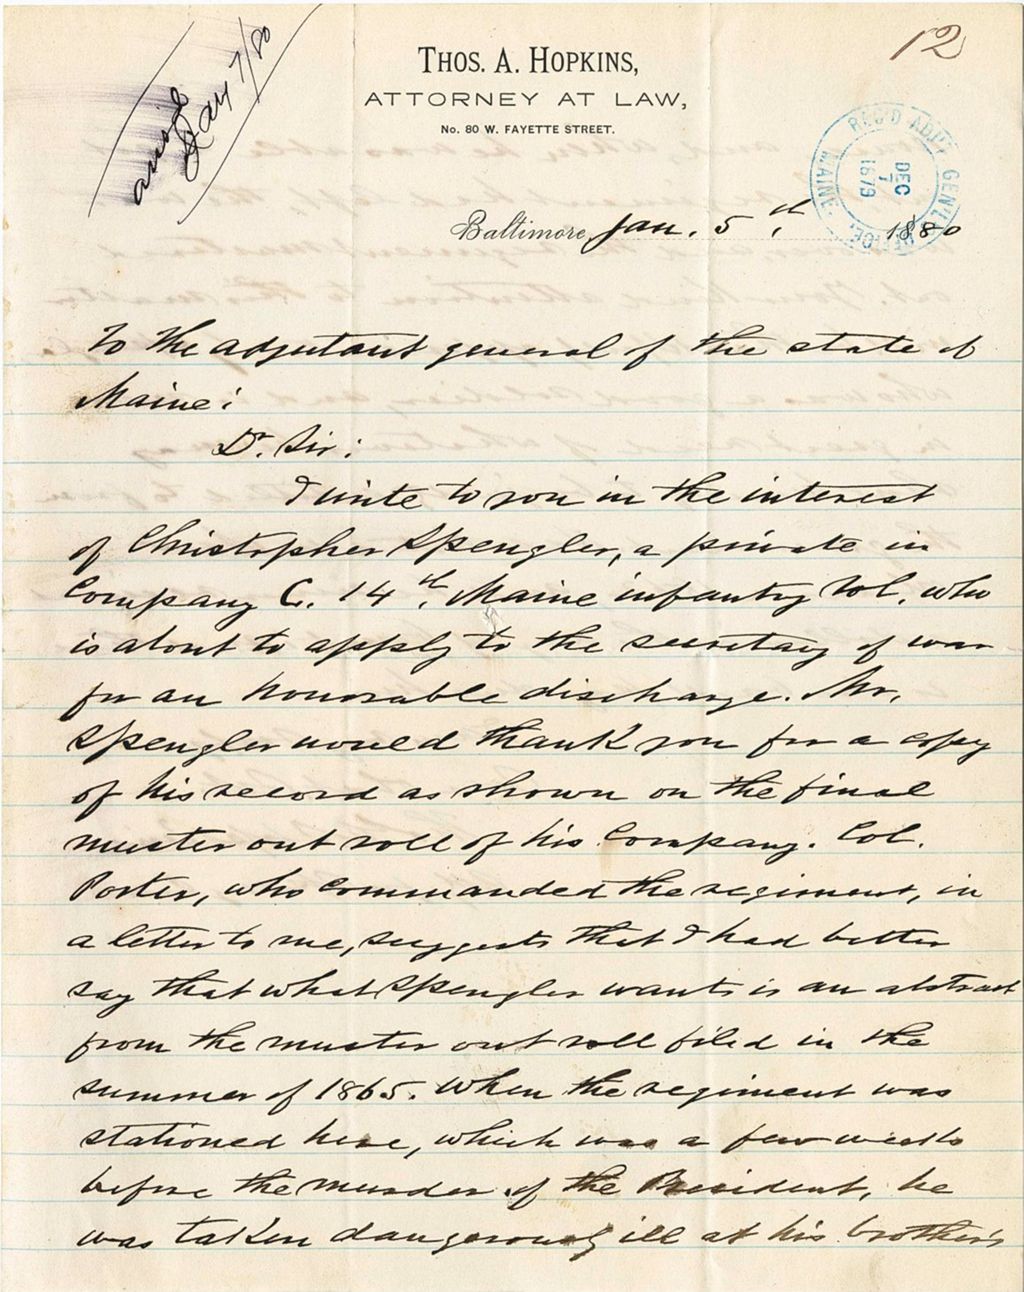 12
THOS. A. HOPKINS,
ATTORNEY AT LAW,
No. 80 W. FAYETTE STREET.
Jan 7/80
REC'D ADJT GEN'L'S OFFICE, MAINE.
DEC
1879
Baltimore, Jan. 5th, 1880
To the adjutant general of the state of
Maine:
Dr. Sir:
I write to you in the interest
of Christopher Spengler, a private in
Company C. 14th. Maine infantry Vol. who
is about to apply to the secretary of war
for an honorable discharge. Mr.
Spengler would thank you for a copy
of his record as shown on the final
muster out roll of his Company. Col.
Porter, who commanded the regiment, in
a letter to me, suggests that I had better
say that what Spengler wants is an abstract
from the muster out roll filed in the
summer of 1865. When the regiment was
stationed here, which was a few weeks
before the murder of the President, he
was taken dangerously ill at his brother's